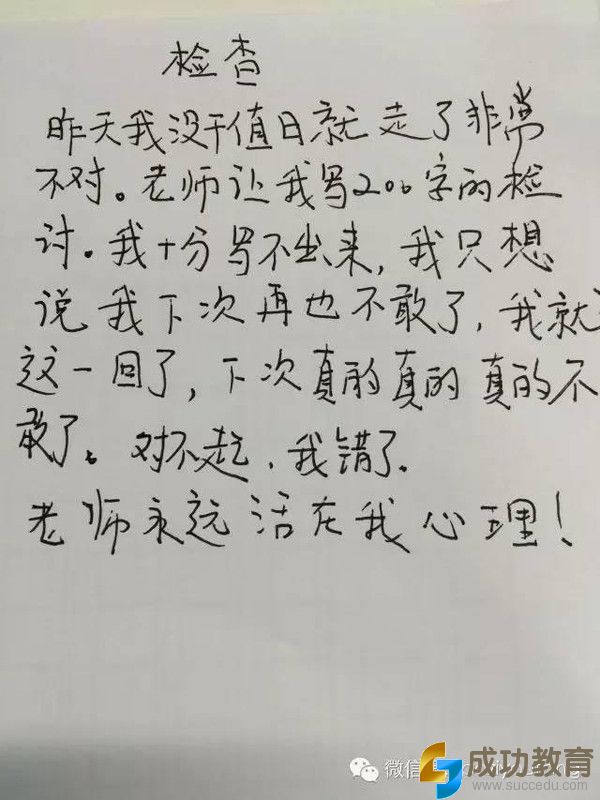 检查
昨天我没干值日就走了非常
不对。老师让我写200字的检
讨。我十分写不出来,我只想
说我下次再也不敢了,我就
这一回了,下次真的真的真的不
敢了。对不起,我错了.
老师永远活在我心理!
微信
成功教育
www.succedu.com